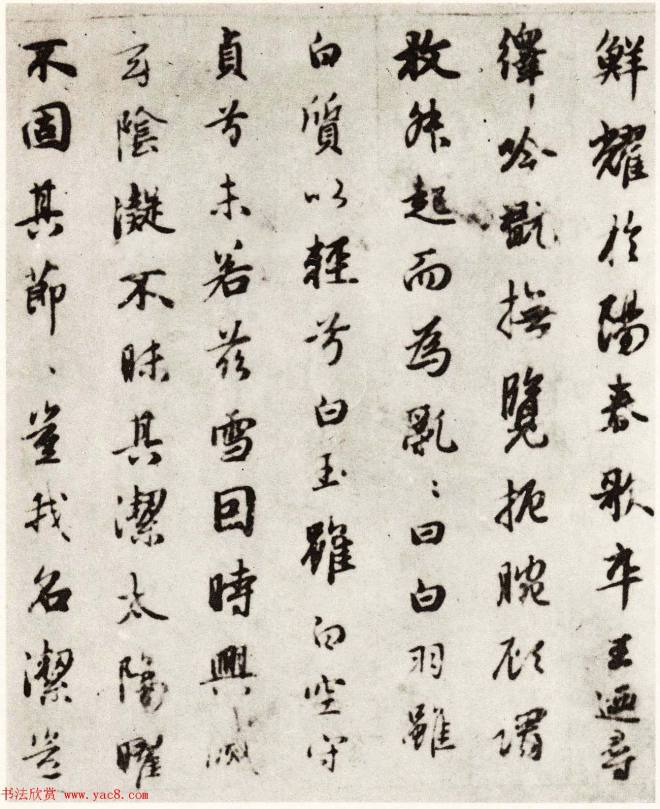 鮮耀於陽春歌卒王迺尋
繹〻吟翫撫覽扼腕顧謂
枚叔起而為亂〻曰白羽雖
白質以輕兮白玉雖白空守
貞兮未若茲雪因時興滅
玄陰凝不昧其潔太陽曜
不固其節〻豈我名潔豈
书法欣赏 www.yac8.com